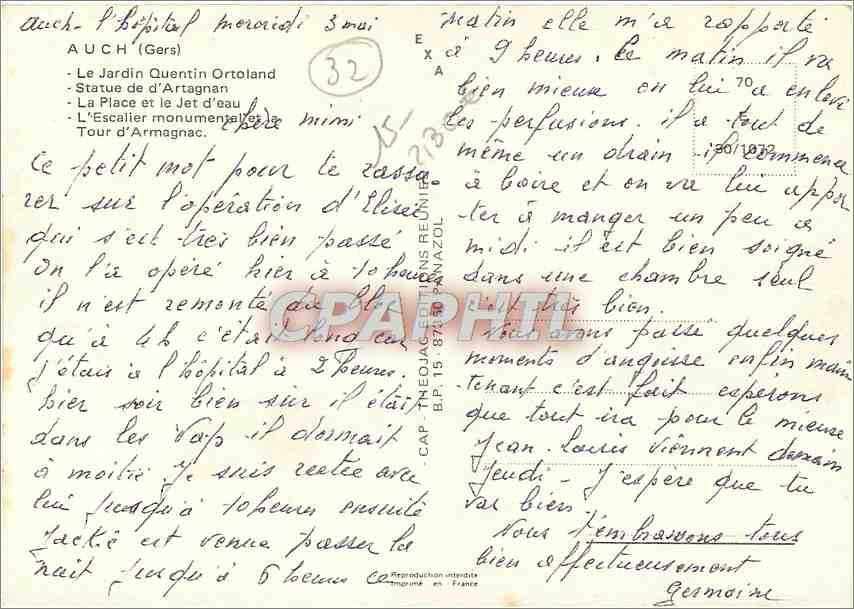 Auch - l'hôpital mercredi 3 mai
AUCH (Gers)
- Le Jardin Quentin Ortoland
- Statue de d'Artagnan
- La Place et le Jet d'eau
- L'Escalier monumental et la
Tour d'Armagnac.
32
15-
chère mimi
Ce petit mot pour te rassu
rer sur l'opération d'Elisée
qui s'est très bien passé
On l'a opéré hier à 10 heures
il n'est remonté du bloc
qu'à 4h c'était long car
j'étais à l'hôpital à 2 heures.
hier soir bien sûr il était
dans les Vap il dormait
à moitié. Je suis restée avec
lui jusqu'à 10 heures ensuite
Jackie est venue passer la
nuit jusqu'à 6 heures ce
EXA
CAP - THEOJAC - EDITIONS REUNIES
B.P. 15 - 87350 PANAZOL
Reproduction interdite
Imprimé en France
CPAPHIL
70
30/1072
Matin elle m'a rapporté
à 9 heures. Ce matin il va
bien mieux on lui a enlevé
les perfusions. il a tout de
même un drain il commence
à boire et on va lui appor
ter à manger un peu a
midi il est bien soigné
dans une chambre seul
c'est très bien.
Nous avons passé quelques
moments d'angoisse enfin main
tenant c'est fait esperons
que tout ira pour le mieux
Jean-Louis viennent demain
jeudi - J'espère que tu
vas bien
Nous t'embrassons tous
bien affectueusement
Germaine